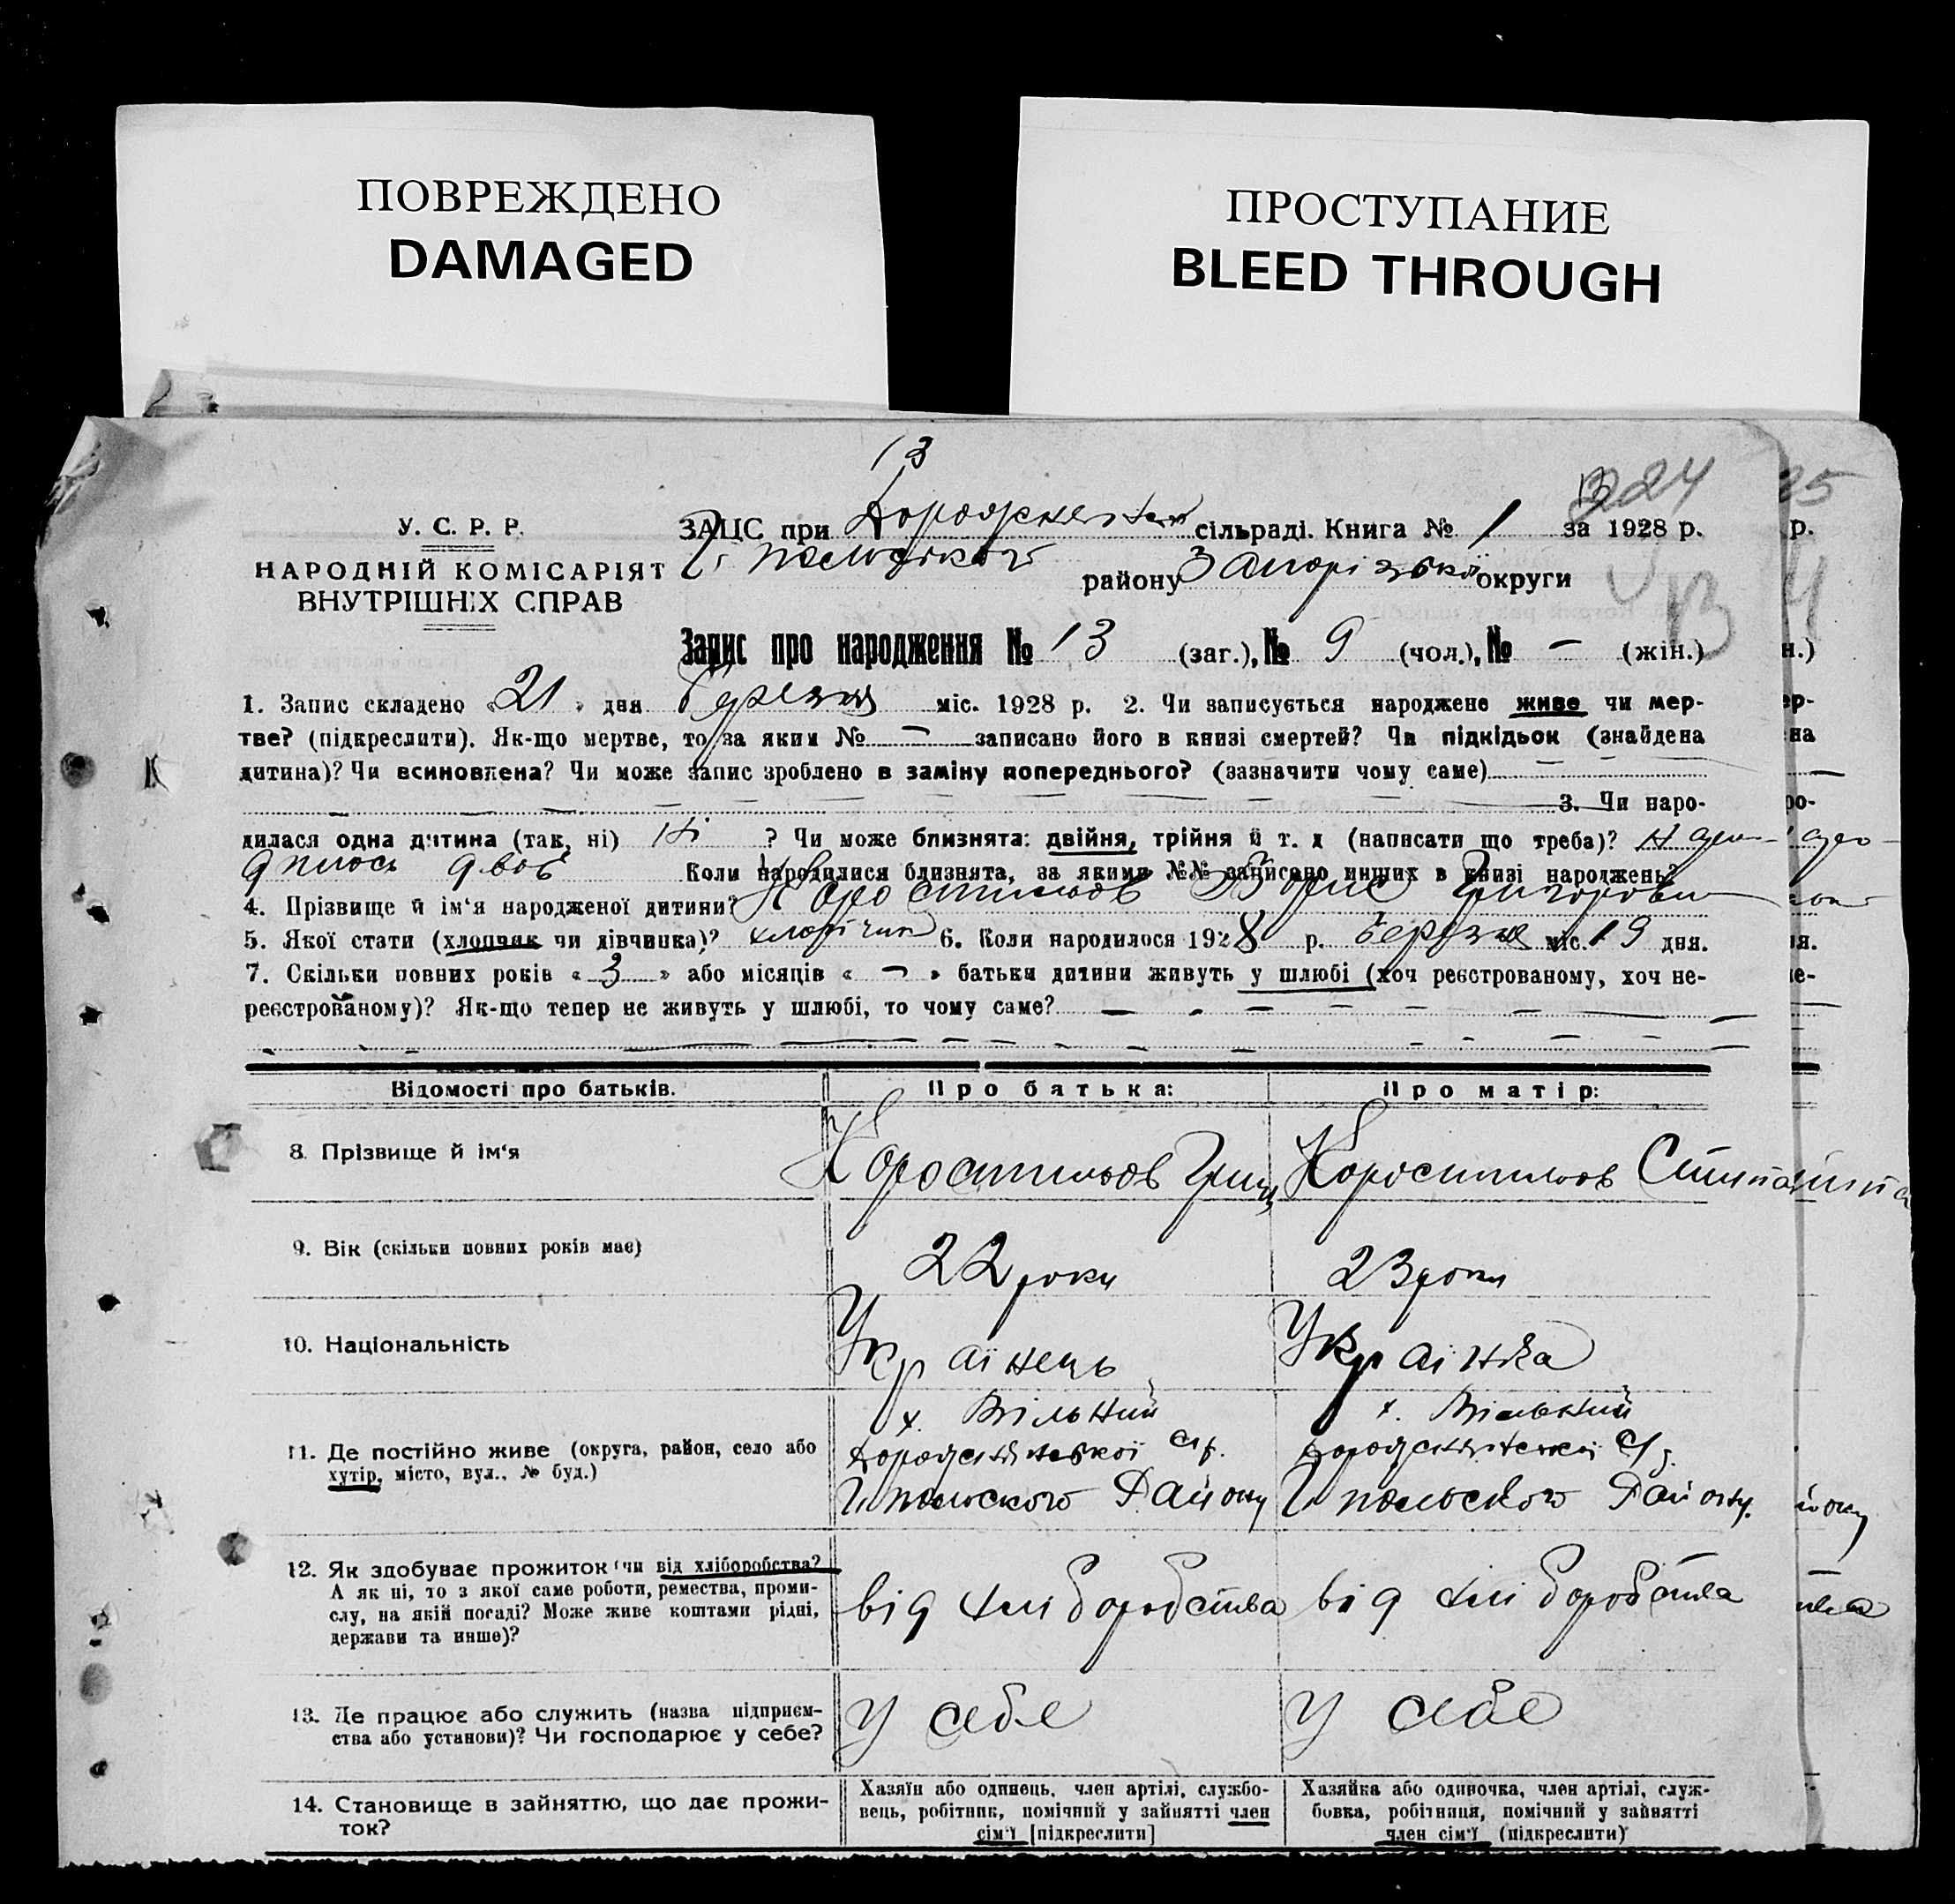 ПОВРЕЖДЕНО
DAMAGED
ПРОСТУПАНИЕ
BLEED THROUGH
13
224
25
У. С. Р. Р.
НАРОДНІЙ КОМІСАРІЯТ
ВНУТРІШНІХ СПРАВ
ЗАЦС при сільраді. Книга № 1 за 1928 р.
р.
району Запорізької округи
Запис про народження № 13 (заг.), № 9 (чол.), № – (жін.)
н.)
1. Запис складено «21» дня Березня міс. 1928 р. 2. Чи записується народжене живе чи мер-
тве? (підкреслити). Як-що мертве, то за яким № – записано його в книзі смертей? Чи підкідьок (знайдена
дитина)? Чи всиновлена? Чи може запис зроблено в заміну попереднього? (зазначити чому саме)
3. Чи наро-
дилася одна дитина (так, ні) Ні ? Чи може близнята: двійня, трійня й т. д (написати що треба)?
двоє Коли народилися близнята, за якими №№ записано инших в книзі народжень?
4. Прізвище й ім'я народженої дитини? Коростильов Борис Григорович
5. Якої стати (хлопчик чи дівчинка)? хлопчик 6. Коли народилося 1928 р. березня міс. 19 дня.
7. Скільки повних років «3» або місяців « – » батьки дитини живуть у шлюбі (хоч реєстрованому, хоч не-
реєстрованому)? Як-що тепер не живуть у шлюбі, то чому саме?
Відомості про батьків.
Про батька:
Про матір:
8. Прізвище й ім'я
Коростильов Гриц
Коростильов
9. Вік (скільки повних років має)
22 роки
23 роки
10. Національність
Українець
Українка
11. Де постійно живе (округа, район, село або
хутір, місто, вул., № буд.)
х. Вільний
с/р.
Г. польского Району
х. Вільний
с/р.
Г. польского Району.
12. Як здобуває прожиток (чи від хліборобства?
А як ні, то з якої саме роботи, ремества, проми-
слу, на якій посаді? Може живе коштами рідні,
держави та инше)?
від хліборобства
від хліборобства
13. Де працює або служить (назва підприєм-
ства або установи)? Чи господарює у себе?
у себе
у себе
14. Становище в зайняттю, що дає прожи-
ток?
Хазяїн або одинець, член артілі, службо-
вець, робітник, помічний у зайнятті член
сім'ї [підкреслити]
Хазяйка або одиночка, член артілі, служ-
бовка, робітниця, помічний у зайнятті
член сім'ї (підкреслити)